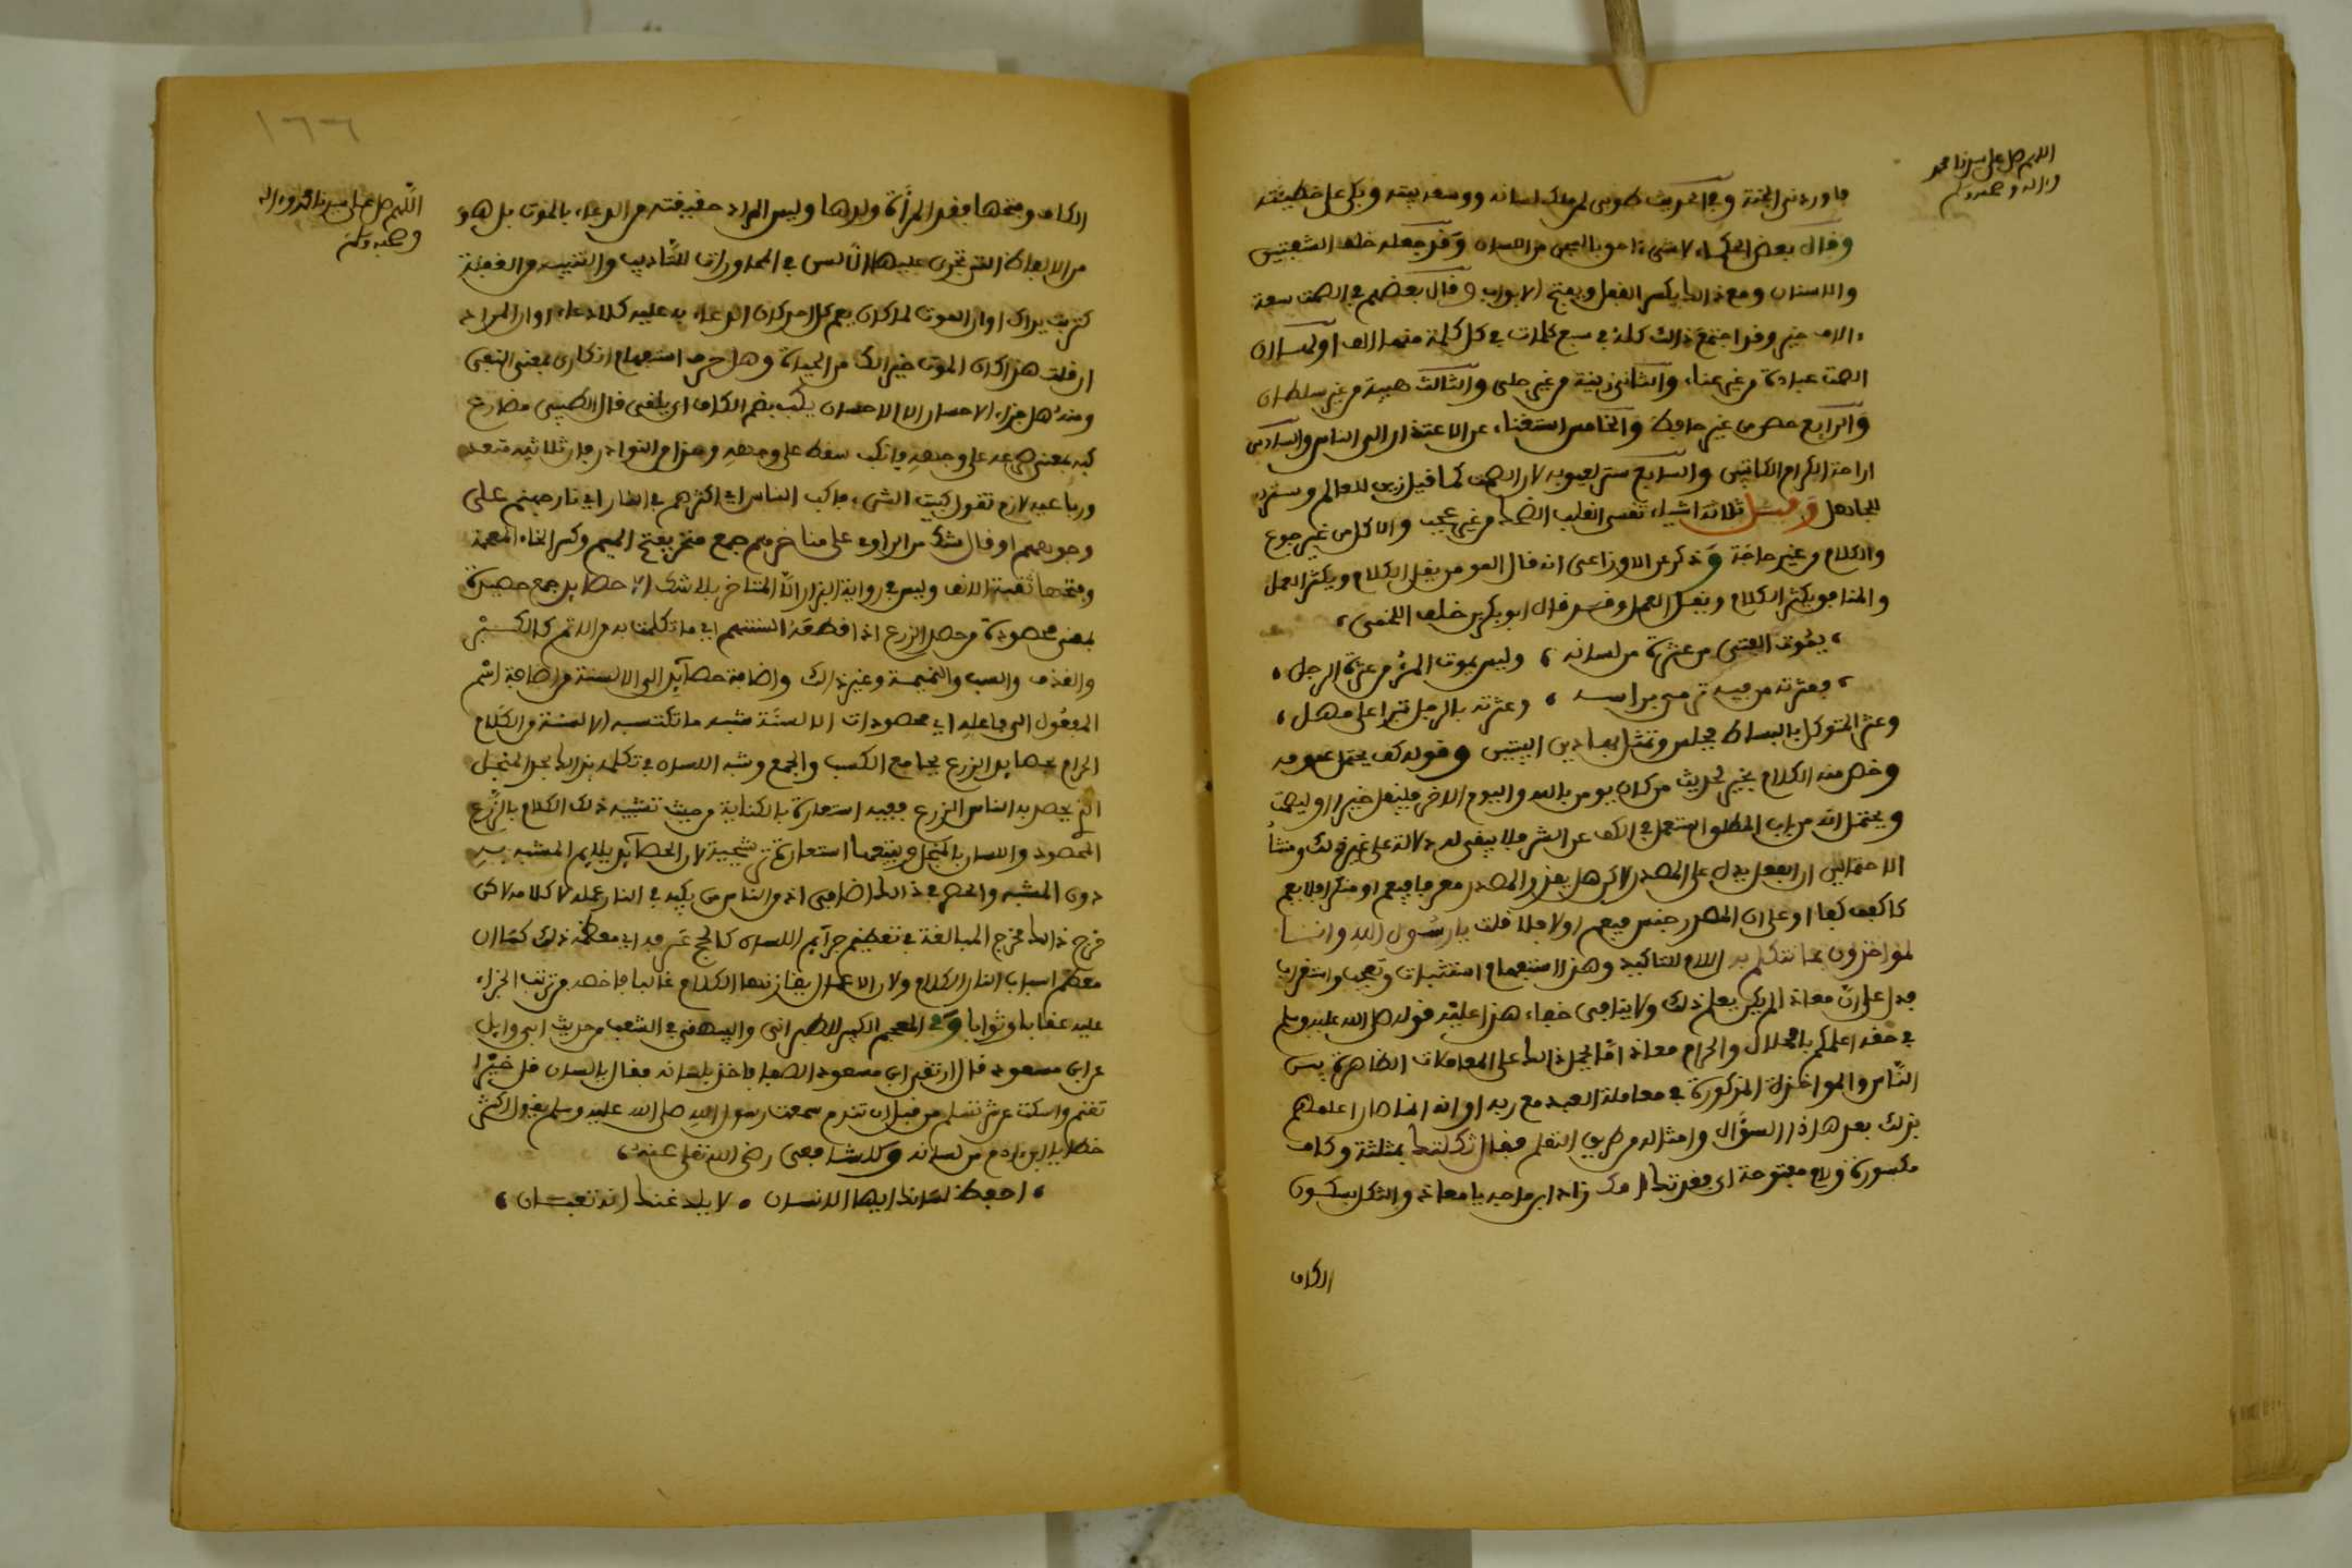 اللهم صل على سيدنا محمد
وءاله وصحبه وسلم
فاوردني الجنة وفي الحديث طوبى لمن ملك لسانه ووسعه بيته وبكى على خطيئته
وقال بعض الحكماء لا شيء احق بالسجن من اللسان وقد جعله خلف الشفتين
والاسنان ومع ذلك يكسر القفل ويفتح الابواب وقال بعضهم في الصمت سبعة
ءالاف خير وقد اجتمع ذلك كله في سبع كلمات في كل كلمة منها الف اولهــا ان
الصمت عبادة من غير عناء والثاني زينة من غير حلي والثالث هيبة من غير سلطان
والرابع حصن من غير حائط والخامس استغناء عن الاعتذار الى الناس والسادس
اراحة الكرام الكاتبين والسابع ستر لعيوبه لان الصمت كما قيل زين للعالم وستر
للجاهل وقيــل ثلاثة اشياء تقسي القلب الضحك من غير عجب والاكل من غير جوع
والكلام من غير حاجة وذكر عن الاوزاعي انه قال المومن يقل الكلام ويكثر العمل
والمنافق يكثر الكلام ويقــل العمل وقــد قال ابو بكر بن خلف اللخمي،
، يموت الفتى من عثرة من لسانه ، وليس يموت المرء من عثرة الرجل ،
، فعثرته من فيه ترمي براسه ، وعثرته بالرجل تبرا على مهــل ،
وعثر المتوكل بالبساط فجلس وتمثل بهاذين البيتين وقوله كف يحتمل عمومه
وخص منه الكلام بخير لحديث من كان يومن بالله واليوم الاخر فليقل خيرا او ليصمت
ويحتمل انه من باب المطلق استعمل في الكف عن الشر فلا يبقى له دلالة على غير ذلك ومنشأ
الاحتمالين ان الفعل يدل على المصدر لاكن هل يقدر المصدر معرفا فيعم او منكرا فلا يعم
كاكفف كفا او على ان المصدر جنس فيعم او لا فلا قلت يا رسول الله وانــا
لمواخذون بما نتكلم به اللام للتاكيد وهذا استفهام استثبات وتعجب واستغراب
يدل على ان معاذ لم يكن يعلم ذلك ولا ينافي خفاء هذا عليه قوله صلى الله عليه وسلم
في حقه اعلمكم بالحلال والحرام معاذ اما لحمل ذلك على المعاملات الظاهرة بين
الناس والمواخذة المذكورة في معاملة العبد مع ربه او انه انما صار اعلمهم
بذلك بعد هاذا السؤال وامثاله من طريق التعلم فقال ثكلتك بمثلثة وكاف
مكسورة ولام مفتوحة اي فقدتك امك زاد ابن ماجه يا معاذ والثكل بسكون
الكاف
١٦٦
اللهم صل على سيدنا محمد وءاله
وصحبه وسلم
الكاف وفتحها فقد المرأة ولدها وليس المراد حقيقته من الدعاء بالموت بل هو
من الالفاظ التي تجري على الالسن في المحاورات للتأديب والتنبيه من الغفلة
كتربت يداك او ان الموت لما كان يعم كل احد كان الدعاء به عليه كلا دعاء او ان المراد
ان فعلت هذا كان الموت خيرا لك من الحياة وهل حرف استفهام انكاري بمعنى النفي
ومنه هل جزاء الاحسان الا الاحسان يكب بضم الكاف اي يلقي قال الطيبي مضارع
كبه بمعنى صرعه على وجهه فانكب سقط على وجهه وهذا من النوادر فان ثلاثيه متعد
ورباعيه لازم تقول كببت الشيء فاكب الناس اي اكثرهم في النار اي نار جهنم على
وجوههم او قال شك من الراوي على مناخرهم جمع منخر بفتح الميم وكسر الخاء المعجمة
وفتحها ثقبة الانف وليس في رواية البزار الا المناخر بلا شك الا حصايد جمع حصيدة
بمعنى محصودة من حصد الزرع اذا قطعه السنتهم اي ما تكلمت به من الاثم كالكــبر
والقذف والسب والنميمة وغير ذلك واضافة حصآئد الى الالسنة من اضافة اسم
المفعول الى فاعله اي محصودات الالسنة شبه ما تكتسبه الالسنة من الكلام
الحرام بحصايد الزرع بجامع الكسب والجمع وشبه اللسان في تكلمه بذلك بحد المنجل
الذي يحصد به الناس الزرع ففيه استعارة بالكناية من حيث تشبيه ذلك الكلام بالزرع
المحصود واللسان بالمنجل ويتبعها استعارة ترشيحية لان الحصآئد يلايم المشبه بــه
دون المشبه والحصر في ذلك اضافي اذ من الناس من يكبه في النار عمله لا كلامه لاكن
خرج ذلك مخرج المبالغة في تعظيم جرآئم اللسان كالحج عرفة اي معظمه ذلك كما ان
معظم اسباب النار الكلام ولان الاعمال يقارنها الكلام غالبا فله حصة من ترتب الجزاء
عليه عقابا وثوابا وفي المعجم الكبير للطبراني والبيهقي في الشعب من حديث ابي وايل
عن ابن مسعود قال ارتقى ابن مسعود الصفا فاخذ بلسانه فقال يا لسان قل خيرا
تغنم واسكت عن شر تسلم من قبل ان تندم سمعت رسول الله صلى الله عليه وسلم يقول اكثر
خطايا ابن ءادم من لسانه وللشافعي رضي الله تعلى عنه،
، احفظ لسانك ايها الانسان ، لا يلدغنك انه ثعبــان ،